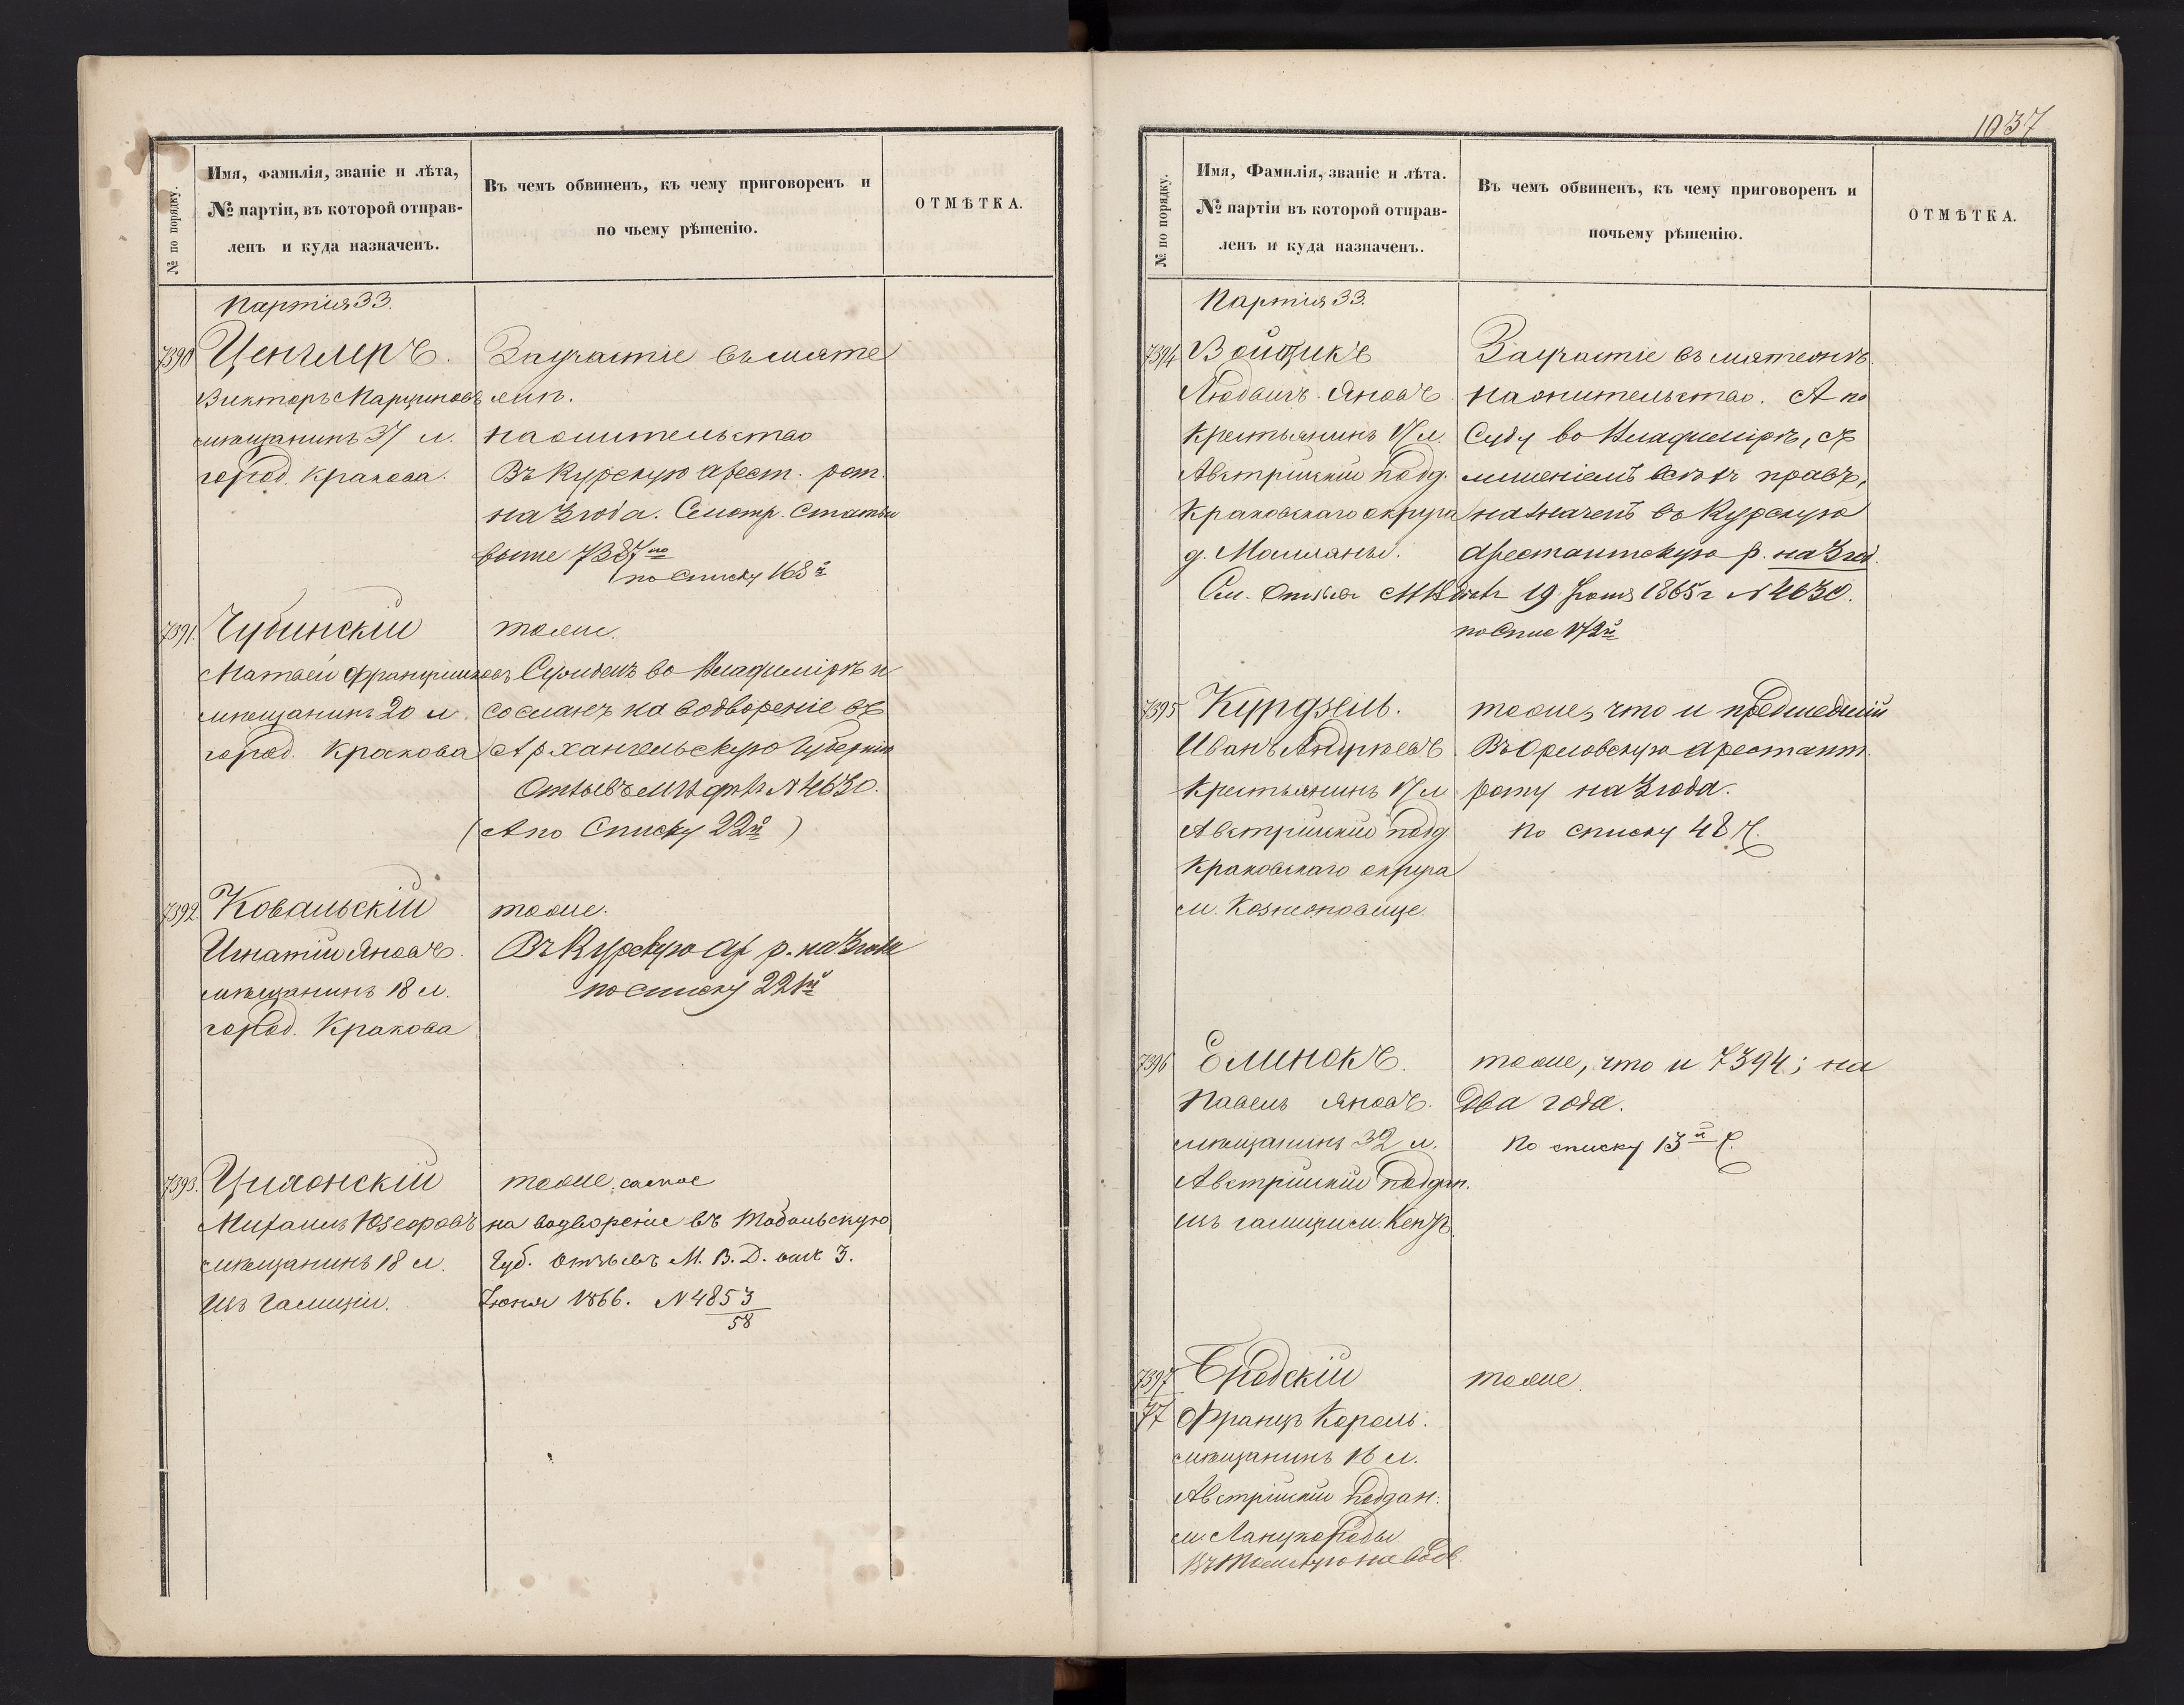 № по порядку.
Имя, фамилія, званіе и лѣта,
№ партіи, въ которой отправ-
ленъ и куда назначенъ.
Въ чемъ обвиненъ, къ чему приговоренъ и
по чьему рѣшенію.
ОТМѢТКА.
Партія 33.
7390
Ценглеръ.
Викторъ Марциновъ
мѣщанинъ 37 л.
город. Кракова.
За участіе въ мяте
жѣ.
на жительство
Въ Курскую арест. рот.
на 3 года. Смотр. Статью
выше 7387ю
по списку 168й
7391.
Чубинскій
Матвей Францишковъ
мѣщанинъ 20 л.
город. Кракова
тоже.
Сужденъ во Владимірѣ и
сосланъ на водвореніе въ
Архангельскую Губернію
Отзывъ № 4630.
(А по Списку 22й)
7392.
Ковальскій
Игнатій Яновъ.
мѣщанинъ 18 л.
город. Кракова
тоже.
Въ Курскую ар. р. на 3 года
по списку 221й
7393.
Цилонскій
Михаилъ Юзефовъ
мѣщанинъ 18 л.
изъ Галиціи.
тоже самое
на водвореніе въ Тобольскую
Губ. отзывъ М. В. Д. отъ 3.
Іюня 1866. № 4853
58
1037
№ по порядку.
Имя, Фамилія, званіе и лѣта.
№ партіи въ которой отправ-
ленъ и куда назначенъ.
Въ чемъ обвиненъ, къ чему приговоренъ и
почьему рѣшенію.
ОТМѢТКА.
Партія 33.
7394
Войцикъ
Людвигъ Яновъ
Крестьянинъ 17 л.
Австрійскій подд.
Краковскаго округа
д.
За участіе въ мятежѣ.
на жительство. А по
Суду во Владимірѣ, съ
лишеніемъ всѣхъ правъ,
назначенъ въ Курскую
арестантскую р. на 3 год.
См. Отзывъ 19 1865 г № 4630.
по Спис 172й
7395
Курдзель.
Иванъ Андреевъ
Крестьянинъ 17 л
Австрійскій подд.
Краковскаго округа
м.
тоже, что и предшедшій
Въ Орловскую арестант.
роту на 3 года.
по списку 48й.
7396
Елинокъ.
Павелъ Яновъ.
мѣщанинъ 32 л.
Австрійскій поддан.
изъ Галиціи м. Кенты
тоже, что и 7394; на
Два года.
По списку 13й
7397
77
Бродскій
Францъ Кароль.
мѣщанинъ 16 л.
Австрійскій поддан.
м. Ланцкороны
Въ Томскую на Водв.
тоже.